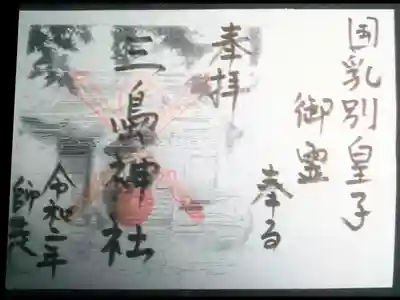 国乳別皇子
御霊
奉る
奉拝
三嶋神社
令和二年
師走